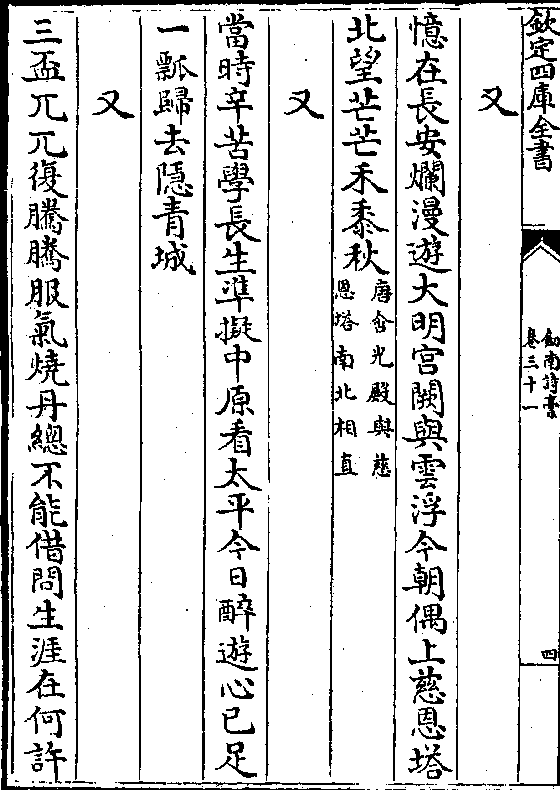 欽定四庫全書
劍南詩藁
卷三十一
四
又
憶在長安爛漫遊大明宫闕與雲浮今朝偶上慈恩塔
北望芒芒禾黍秋
唐含光殿與慈
恩塔南北相直
又
當時辛苦學長生準擬中原看太平今日醉遊心已足
一瓢歸去隱青城
又
三盃兀兀復騰騰服氣燒丹總不能借問生涯在何許